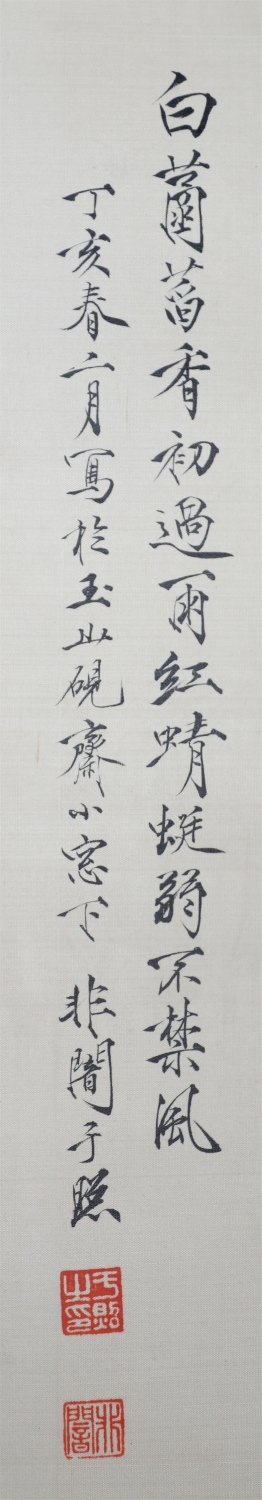 白菡萏香初過雨紅蜻蜓弱不禁風
丁亥春二月寫於玉山硯齋小窓下 非闇于照
于照之印
非闇